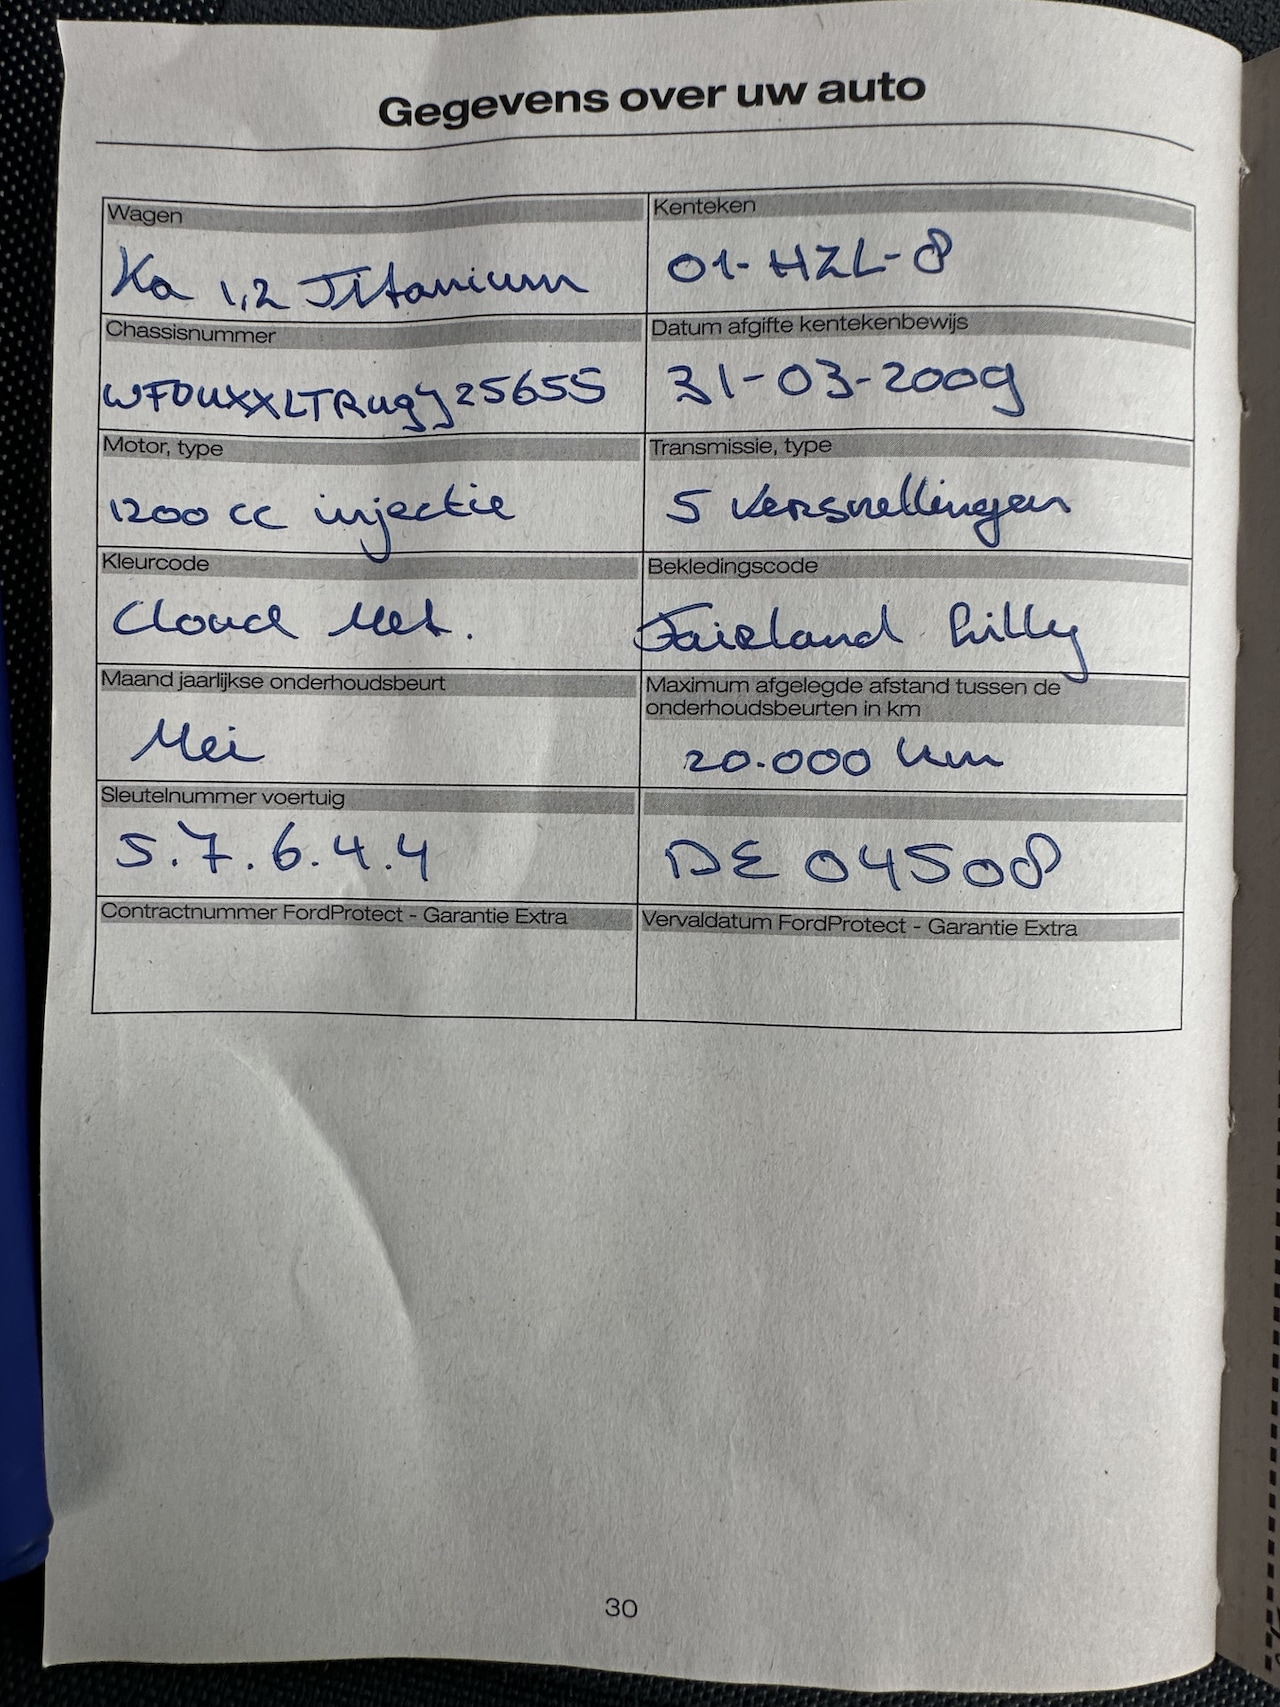 Gegevens over uw auto
Wagen
Ka 1,2 Titanium
Kenteken
01-HZL-8
Chassisnummer
WF0UXXLTRU9J25655
Datum afgifte kentekenbewijs
31-03-2009
Motor, type
1200 cc injectie
Transmissie, type
5 versnellingen
Kleurcode
Cloud Met.
Bekledingscode
Fairland Lilly
Maand jaarlijkse onderhoudsbeurt
Mei
Maximum afgelegde afstand tussen de
onderhoudsbeurten in km
20.000 km
Sleutelnummer voertuig
5.7.6.4.4
DE 04508
Contractnummer FordProtect - Garantie Extra
Vervaldatum FordProtect - Garantie Extra
30